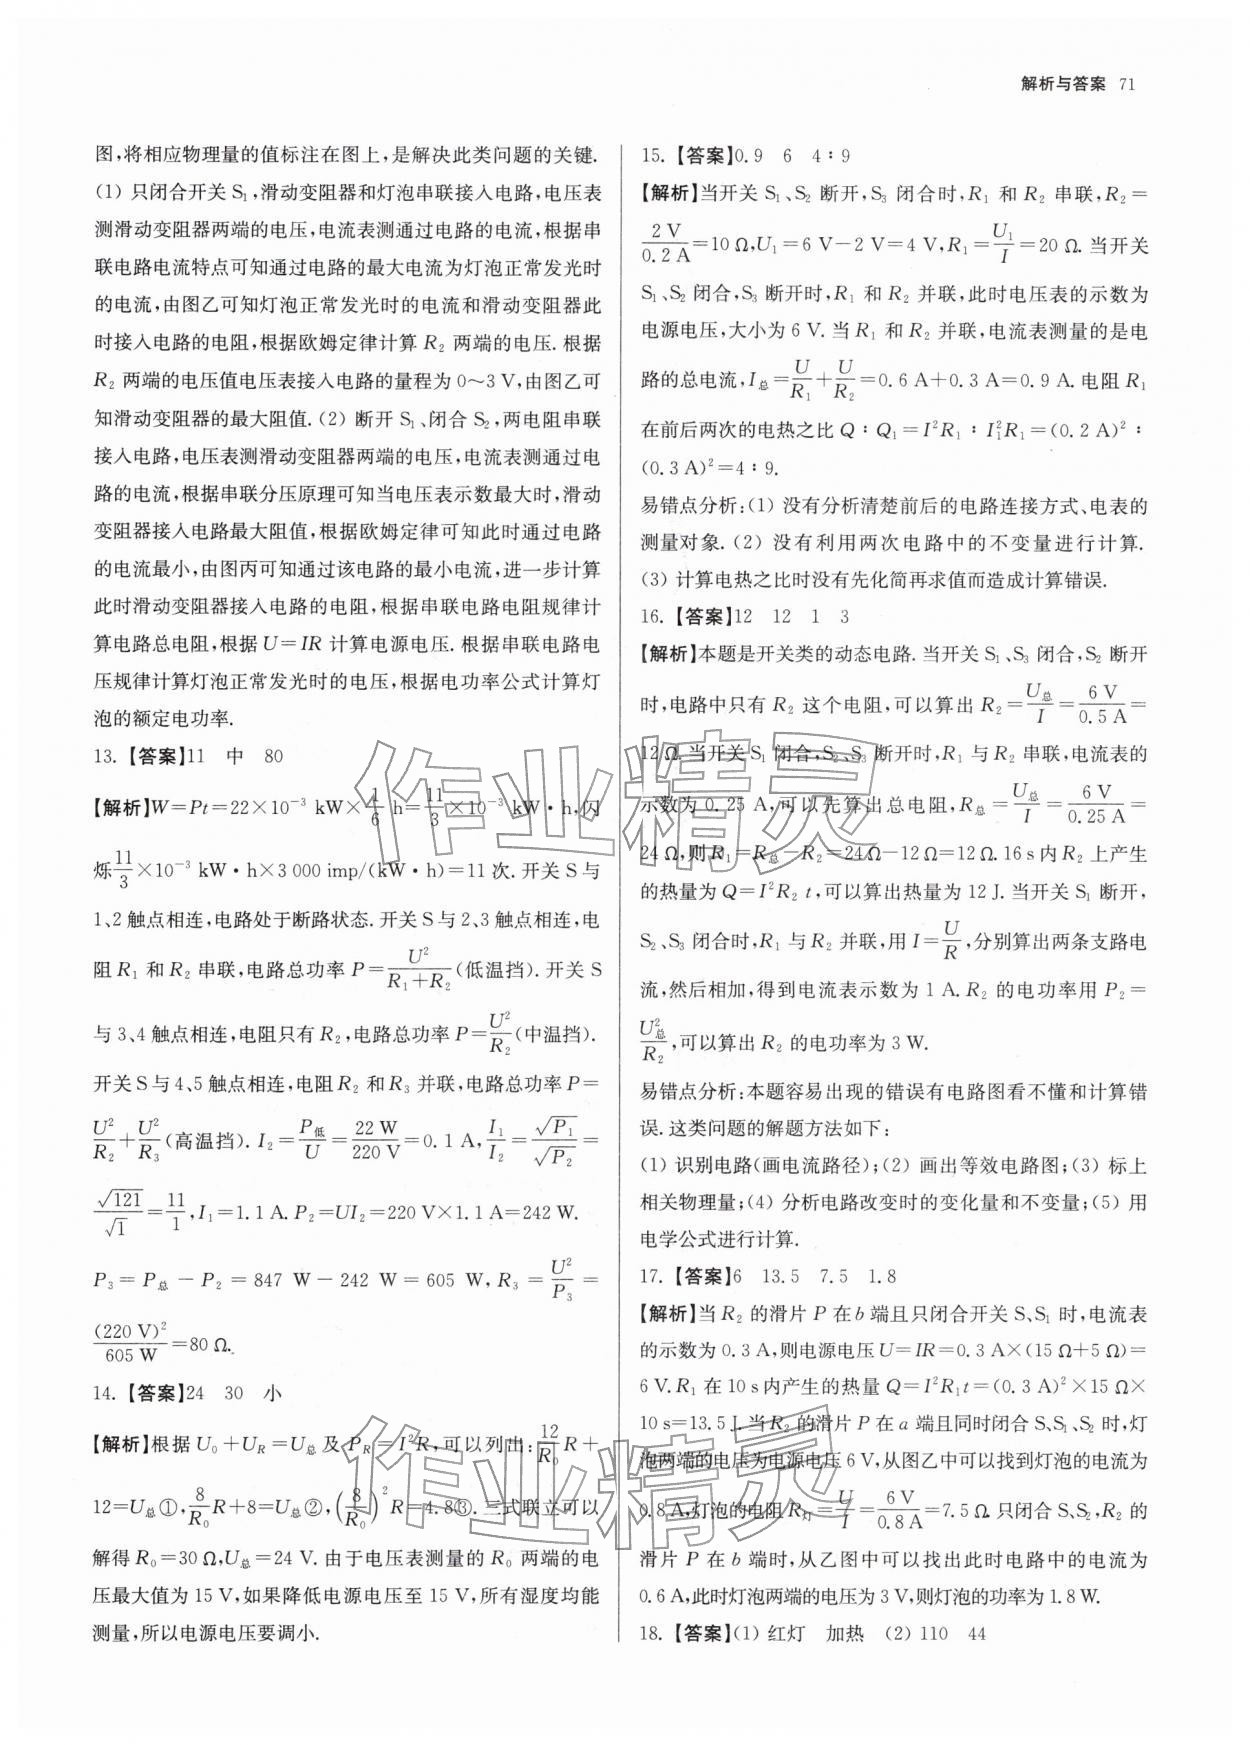 解析与答案 71
图,将相应物理量的值标注在图上,是解决此类问题的关键.
(1) 只闭合开关 S₁,滑动变阻器和灯泡串联接入电路,电压表
测滑动变阻器两端的电压,电流表测通过电路的电流,根据串
联电路电流特点可知通过电路的最大电流为灯泡正常发光时
的电流,由图乙可知灯泡正常发光时的电流和滑动变阻器此
时接入电路的电阻,根据欧姆定律计算 R₂ 两端的电压. 根据
R₂ 两端的电压值电压表接入电路的量程为 0～3 V,由图乙可
知滑动变阻器的最大阻值. (2) 断开 S₁、闭合 S₂,两电阻串联
接入电路,电压表测滑动变阻器两端的电压,电流表测通过电
路的电流,根据串联分压原理可知当电压表示数最大时,滑动
变阻器接入电路最大阻值,根据欧姆定律可知此时通过电路
的电流最小,由图丙可知通过该电路的最小电流,进一步计算
此时滑动变阻器接入电路的电阻,根据串联电路电阻规律计
算电路总电阻,根据 U=IR 计算电源电压. 根据串联电路电
压规律计算灯泡正常发光时的电压,根据电功率公式计算灯
泡的额定电功率.
13. 【答案】11 中 80
【解析】W=Pt=22×10⁻³ kW×1/6 h=11/3×10⁻³ kW·h,闪
烁11/3×10⁻³ kW·h×3 000 imp/(kW·h)=11 次. 开关 S 与
1、2 触点相连,电路处于断路状态. 开关 S 与 2、3 触点相连,电
阻 R₁ 和 R₂ 串联,电路总功率 P=U²/(R₁+R₂)(低温挡). 开关 S
与 3、4 触点相连,电阻只有 R₂,电路总功率 P=U²/R₂(中温挡).
开关 S 与 4、5 触点相连,电阻 R₂ 和 R₃ 并联,电路总功率 P=
U²/R₂+U²/R₃(高温挡). I₂=P低/U=22 W/220 V=0.1 A,I₁/I₂=√P₁/√P₂=
√121/√1=11/1,I₁=1.1 A. P₂=UI₂=220 V×1.1 A=242 W.
P₃=P总−P₂=847 W−242 W=605 W,R₃=U²/P₃=
(220 V)²/605 W=80 Ω.
14. 【答案】24 30 小
【解析】根据 U₀+U_R=U总及 P_R=I²R,可以列出:12/R₀R+
12=U总①,8/R₀R+8=U总②,(8/R₀)²R=4.8③. 三式联立可以
解得 R₀=30 Ω,U总=24 V. 由于电压表测量的 R₀ 两端的电
压最大值为 15 V,如果降低电源电压至 15 V,所有湿度均能
测量,所以电源电压要调小.
15. 【答案】0.9 6 4∶9
【解析】当开关 S₁、S₂ 断开,S₃ 闭合时,R₁ 和 R₂ 串联,R₂=
2 V/0.2 A=10 Ω,U₁=6 V−2 V=4 V,R₁=U₁/I=20 Ω. 当开关
S₁、S₂ 闭合,S₃ 断开时,R₁ 和 R₂ 并联,此时电压表的示数为
电源电压,大小为 6 V. 当 R₁ 和 R₂ 并联,电流表测量的是电
路的总电流,I总=U/R₁+U/R₂=0.6 A+0.3 A=0.9 A. 电阻 R₁
在前后两次的电热之比 Q∶Q₁=I²R₁∶I₁²R₁=(0.2 A)²∶
(0.3 A)²=4∶9.
易错点分析:(1) 没有分析清楚前后的电路连接方式、电表的
测量对象. (2) 没有利用两次电路中的不变量进行计算.
(3) 计算电热之比时没有先化简再求值而造成计算错误.
16. 【答案】12 12 1 3
【解析】本题是开关类的动态电路. 当开关 S₁、S₃ 闭合,S₂ 断开
时,电路中只有 R₂ 这个电阻,可以算出 R₂=U总/I=6 V/0.5 A=
12 Ω. 当开关 S₁ 闭合,S₂、S₃ 断开时,R₁ 与 R₂ 串联,电流表的
示数为 0.25 A,可以先算出总电阻,R总=U总/I=6 V/0.25 A=
24 Ω,则 R₁=R总−R₂=24 Ω−12 Ω=12 Ω. 16 s 内 R₂ 上产生
的热量为 Q=I²R₂t,可以算出热量为 12 J. 当开关 S₁ 断开,
S₂、S₃ 闭合时,R₁ 与 R₂ 并联,用 I=U/R,分别算出两条支路电
流,然后相加,得到电流表示数为 1 A. R₂ 的电功率用 P₂=
U总²/R₂,可以算出 R₂ 的电功率为 3 W.
易错点分析:本题容易出现的错误有电路图看不懂和计算错
误. 这类问题的解题方法如下:
(1) 识别电路(画电流路径);(2) 画出等效电路图;(3) 标上
相关物理量;(4) 分析电路改变时的变化量和不变量;(5) 用
电学公式进行计算.
17. 【答案】6 13.5 7.5 1.8
【解析】当 R₂ 的滑片 P 在 b 端且只闭合开关 S、S₁ 时,电流表
的示数为 0.3 A,则电源电压 U=IR=0.3 A×(15 Ω+5 Ω)=
6 V. R₁ 在 10 s 内产生的热量 Q=I²R₁t=(0.3 A)²×15 Ω×
10 s=13.5 J. 当 R₂ 的滑片 P 在 a 端且同时闭合 S、S₁、S₂ 时,灯
泡两端的电压为电源电压 6 V,从图乙中可以找到灯泡的电流为
0.8 A,灯泡的电阻 R灯=U/I=6 V/0.8 A=7.5 Ω. 只闭合 S、S₂,R₂ 的
滑片 P 在 b 端时,从乙图中可以找出此时电路中的电流为
0.6 A,此时灯泡两端的电压为 3 V,则灯泡的功率为 1.8 W.
18. 【答案】(1) 红灯 加热 (2) 110 44
作业精灵
作业精灵